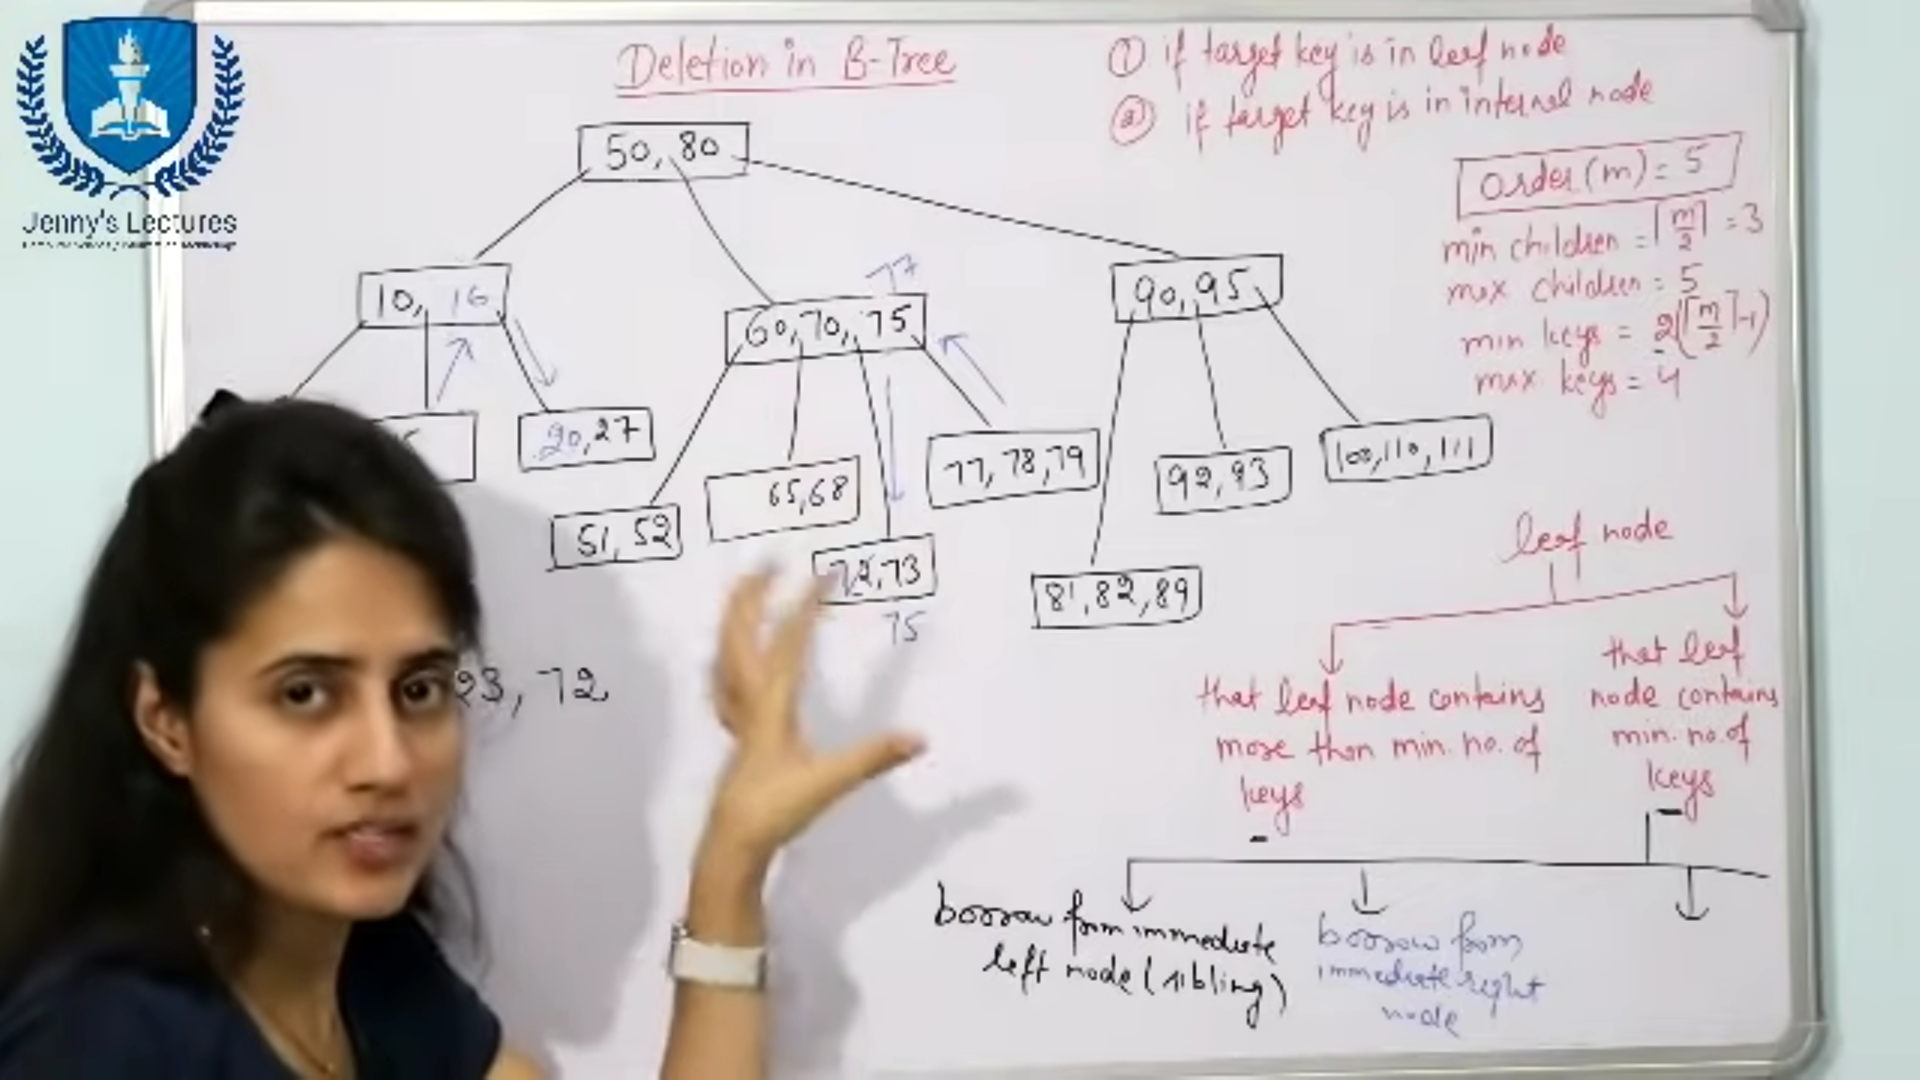 Jenny's Lectures
Deletion in B-Tree
① if target key is in leaf node
② if target key is in internal node
50, 80
Order (m) = 5
min children = ⌈m/2⌉ = 3
max children = 5
min keys = 2 (⌈m/2⌉-1)
max keys = 4
77
10, 16
60, 70, 75
90, 95
20, 27
51, 52
65, 68
72, 73
75
77, 78, 79
81, 82, 89
92, 93
100, 110, 111
23, 72
leaf node
that leaf node contains
more than min. no. of
keys
that leaf
node contains
min. no. of
keys
borrow from immediate
left node (sibling)
borrow from
immediate right
node